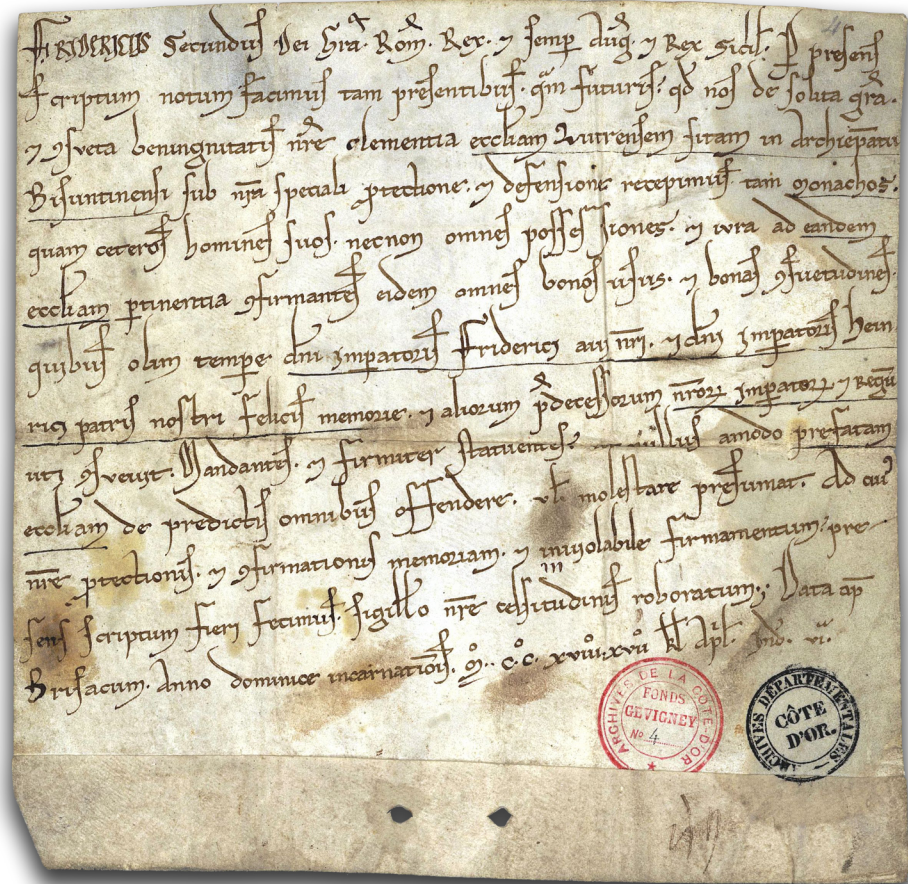 FRIDERICUS Secundus Dei Gra. Rom. Rex. ⁊ semp Aug. ⁊ Rex Sicil. P presens
scriptum notum facimus tam presentibus. qm futuris. qd nos de solita gra.
⁊ ꝯsueta beningnitatis nre clementia eccliam Lutrensem sitam in Archiepatu
Bisuntinensi sub nra speciali ptectione. ⁊ defensione recepimus. tam monachos.
quam ceteros homines suos. necnon omnes possessiones. ⁊ iura ad eandem
eccliam ptinentia ꝯfirmantes eidem omnes bonos usus. ⁊ bonas ꝯsuetudines.
quibus olim tempe dni imperatoris Friderici avi nri. ⁊ dni imperatoris hein
rici patris nostri felicis memorie. ⁊ aliorum pdecessorum nroꝝ imperatoꝝ ⁊ Regū
uti ꝯsevit. Mandantes. ⁊ firmiter statuentes nullus amodo prefatam
eccliam de predictis omnibus offendere. vl molestare presumat. Ad cuiꝰ
nre ptectionis. ⁊ ꝯfirmationis memoriam. ⁊ inviolabile firmamentum: pre
sens scriptum fieri fecimus. sigillo nre celsitudinis roboratum; Data ap
Brisacum. Anno dominice incarnationis. Mͦ. cͦcͦ. xviiͦ. xvii kl Apl. Ind. vi.
ARCHIVES DE LA CÔTE-D'OR
FONDS
GEVIGNEY
No 4
ARCHIVES DÉPARTEMENTALES
CÔTE
D'OR.
4